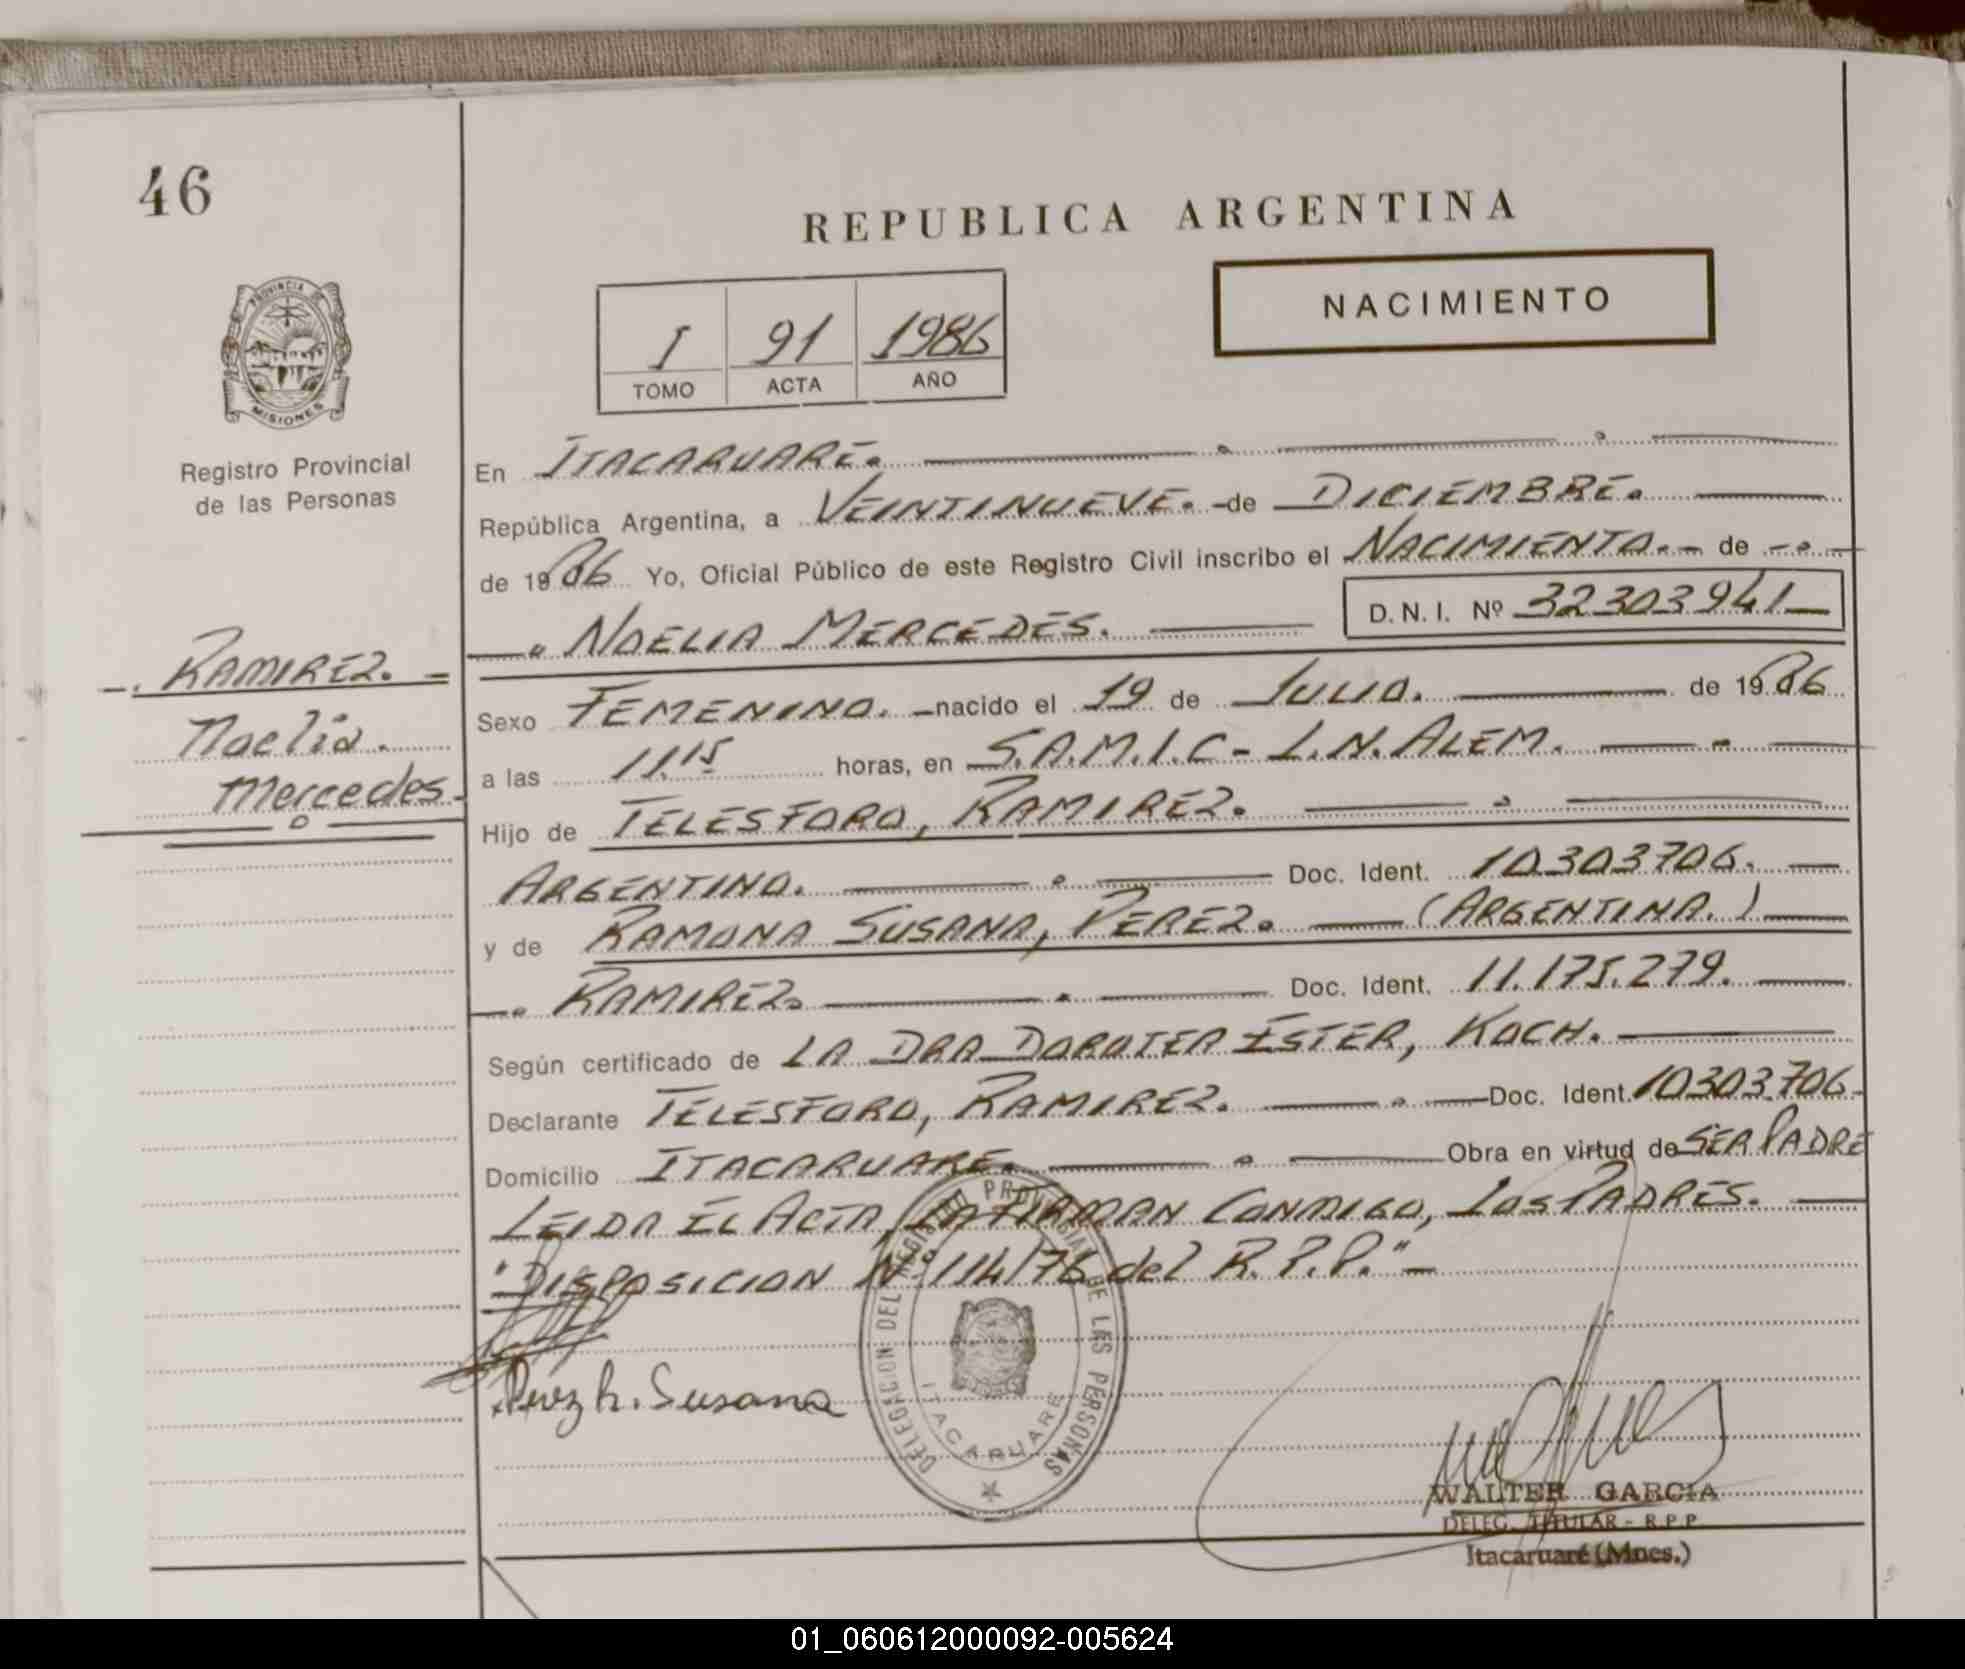 46
REPUBLICA ARGENTINA
NACIMIENTO
I 91 1986
TOMO ACTA AÑO
PROVINCIA DE
MISIONES
Registro Provincial
de las Personas
RAMIREZ.
Noelia.
Mercedes
En ITACARUARE.
República Argentina, a VEINTINUEVE. de DICIEMBRE.
de 1986 Yo, Oficial Público de este Registro Civil inscribo el NACIMIENTO. de
NOELIA MERCEDES. D.N.I. Nº 32303941
Sexo FEMENINO. nacido el 19 de JULIO. de 1986
a las 11.15 horas, en S.A.M.I.C - L.N. ALEM.
Hijo de TELESFORO, RAMIREZ.
ARGENTINO. Doc. Ident. 10303706.
y de RAMONA SUSANA, PEREZ. (ARGENTINA.)
RAMIREZ. Doc. Ident. 11.175.279.
Según certificado de LA DRA DOROTEA ESTER, KOCH.
Declarante TELESFORO, RAMIREZ. Doc. Ident. 10303.706
Domicilio ITACARUARE. Obra en virtud de SER PADRE
LEIDA EL ACTA, LA FIRMAN CONMIGO, LOS PADRES.
"DISPOSICION Nº 114/76 del R.P.P."
Perez R. Susana
DELEGACION DEL REGISTRO PROVINCIAL DE LAS PERSONAS
ITACARUARE
WALTER GARCIA
DELEG. TITULAR - R.P.P.
Itacaruaré (Mnes.)
01_060612000092-005624